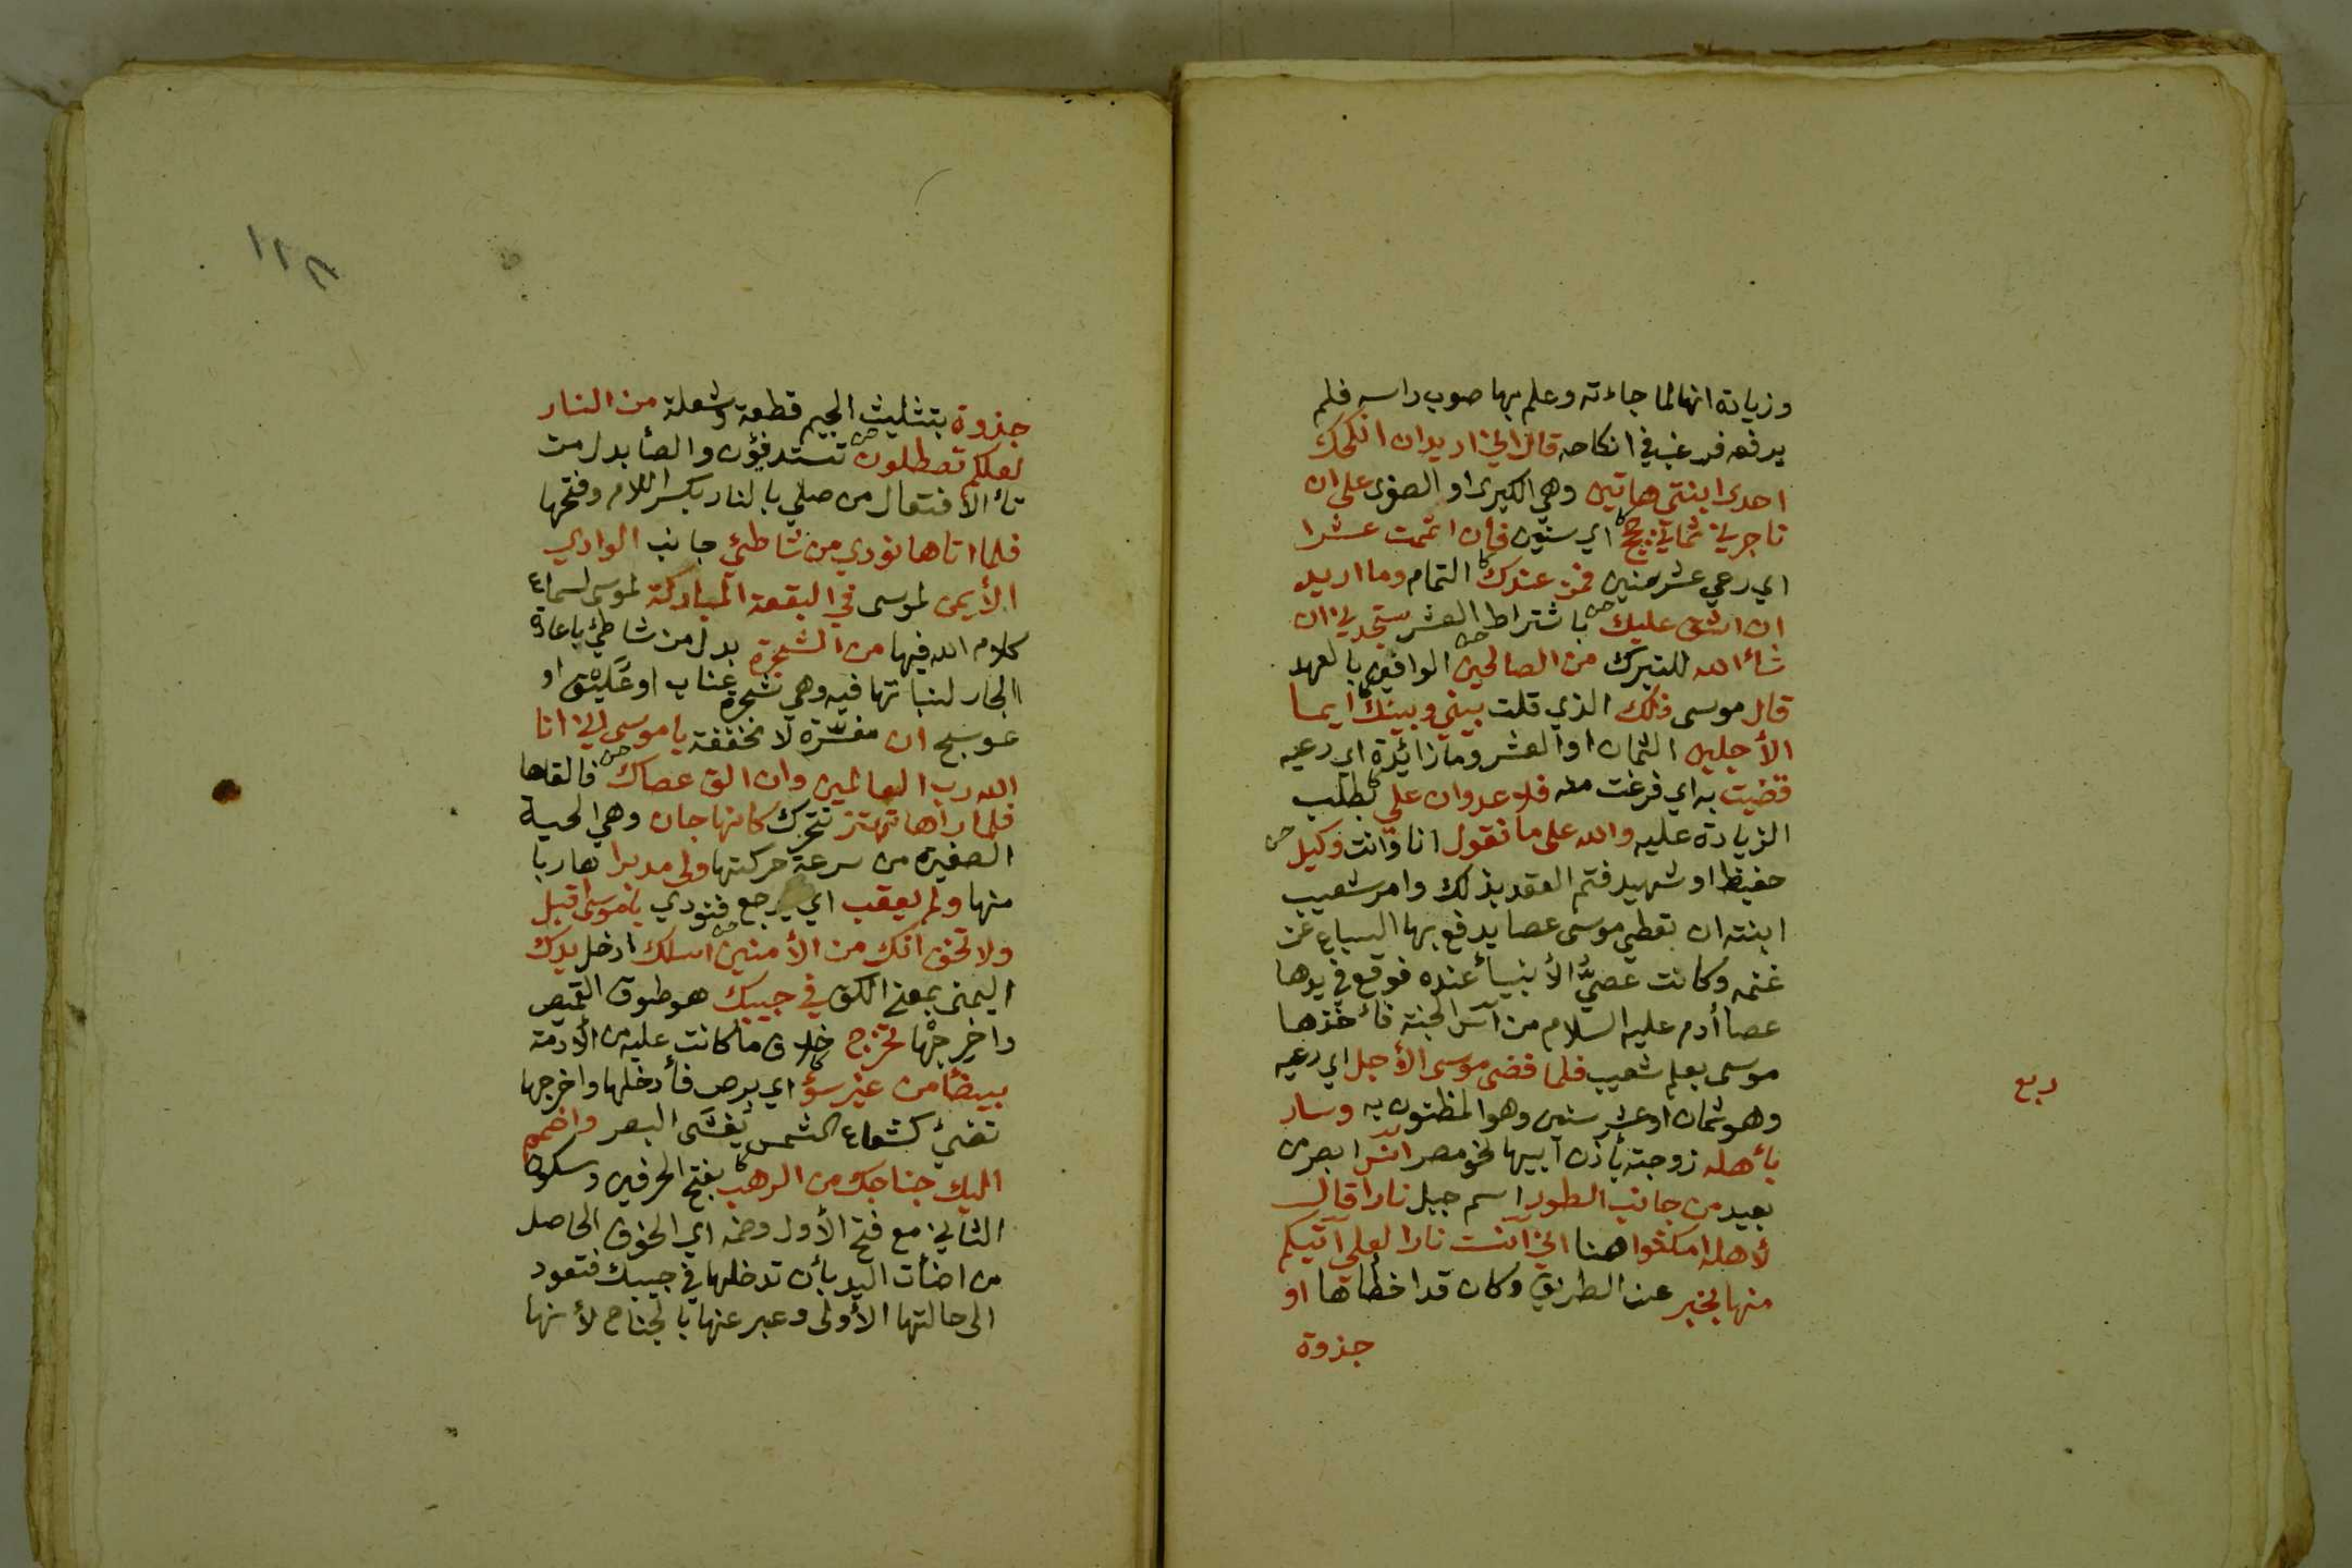 وزيادة انها لما جاءته وعلم بها صوب راسه فلم
يرفعه فرغب في انكاحه قال اني اريد ان انكحك
احدى ابنتي هاتين وهي الكبرى او الصغرى على ان
تاجرني ثماني حجج اي سنين فان اتممت عشرا
اي رعي عشر سنين فمن عندك التمام وما اريد
ان اشق عليك باشتراط العشر ستجدني ان
شاء الله للتبرك من الصالحين الوافين بالعهد
قال موسى ذلك الذي قلت بيني وبينك ايما
الأجلين الثمان او العشر وما زائدة اي رعيه
قضيت به اي فرغت منه فلا عدوان علي بطلب
الزيادة عليه والله على ما نقول انا وانت وكيل
حفيظ او شهيد فتم العقد بذلك وامر شعيب
ابنته ان تعطي موسى عصا يدفع بها السباع عن
غنمه وكانت عصيُّ الأنبيأ عنده فوقع في يدها
عصا أدم عليه السلام من آس الجنة فأخذها
موسى بعلم شعيب فلما قضى موسى الأجل اي رعيه
وهو ثمان او عشر سنين وهو المظنون به وسار
بأهله زوجته بأذن أبيها نحو مصر انس ابصر من
بعيد من جانب الطور اسم جبل نارا قال
لأهله امكثوا هنا اني آنست نارا لعلي آتيكم
منها بخبر عن الطريق وكان قد اخطأها او
جذوة
ربع
١٢٨
جذوة بتثليث الجيم قطعة وشعلة من النار
لعلكم تصطلون تستدفؤن والطأ بدل من
تأ الافتعال من صلي بالنار بكسر اللام وفتحها
فلما اتاها نودي من شاطئ جانب الوادي
الأيمن لموسى في البقعة المباركة لموسى لسماع
كلام الله فيها من الشجرة بدل من شاطئ باعادة
الجار لنباتها فيه وهي شجرة عناب او عُلَّيْق او
عوسج ان مفسّرة لا مخففة يا موسى اني انا
الله رب العالمين وان الق عصاك فالقاها
فلما رأها تهتز تتحرك كانها جان وهي الحية
الصغيرة من سرعة حركتها ولى مدبرا هاربا
منها ولم يعقب اي يرجع فنودي ياموسى اقبل
ولا تخف انك من الأمنين اسلك ادخل يدك
اليمنى بمعنى الكف في جيبك هو طوق القميص
واخرجْها تخرج خلاف ما كانت عليه من الأدمة
بيضأ من غير سؤ اي برص فأدخلها واخرجها
تضئ كشعاع الشمس تغشَى البصر واضمم
اليك جناحك من الرهب بفتح الحرفين وسكون
الثاني مع فتح الأول وضمه اي الخوف الحاصل
من اضأت اليد بأن تدخلها في جيبك فتعود
الى حالتها الأولى وعبر عنها بالجناح لأنها